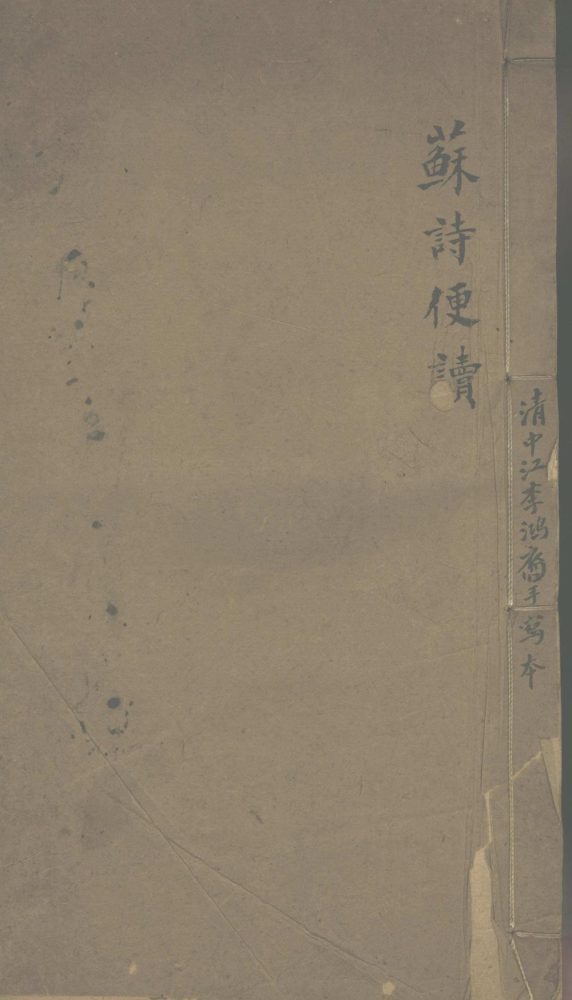 清中江李鴻裔手寫本
蘇詩便讀